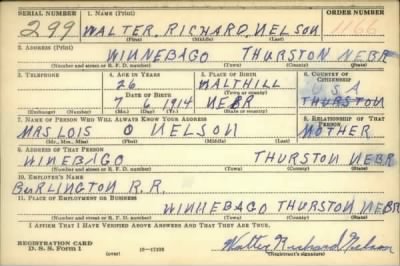 SERIAL NUMBER 1. NAME (Print) ORDER NUMBER
299 WALTER RICHARD NELSON
(First) (Middle) (Last)
2. ADDRESS (Print)
WINNEBAGO THURSTON NEBR
(Number and street or R. F. D. number) (Town) (County) (State)
3. TELEPHONE 4. AGE IN YEARS 5. PLACE OF BIRTH 6. COUNTRY OF CITIZENSHIP
26 WALTHILL USA
DATE OF BIRTH (Town or county) THURSTON
7 6 1914 NEBR
(Exchange) (Number) (Mo.) (Day) (Yr.) (State or country)
7. NAME OF PERSON WHO WILL ALWAYS KNOW YOUR ADDRESS 8. RELATIONSHIP OF THAT PERSON
MRS LOIS O NELSON MOTHER
(Mr., Mrs., Miss) (First) (Middle) (Last)
9. ADDRESS OF THAT PERSON
WINEBAGO THURSTON NEBR
(Number and street or R. F. D. number) (Town) (County) (State)
10. EMPLOYER'S NAME
BURLINGTON R.R.
11. PLACE OF EMPLOYMENT OR BUSINESS
WINNEBAGO THURSTON NEBR
(Number and street or R. F. D. number) (Town) (County) (State)
I AFFIRM THAT I HAVE VERIFIED ABOVE ANSWERS AND THAT THEY ARE TRUE.
REGISTRATION CARD
D. S. S. Form 1 (over) Walter Richard Nelson
(Registrant's signature)